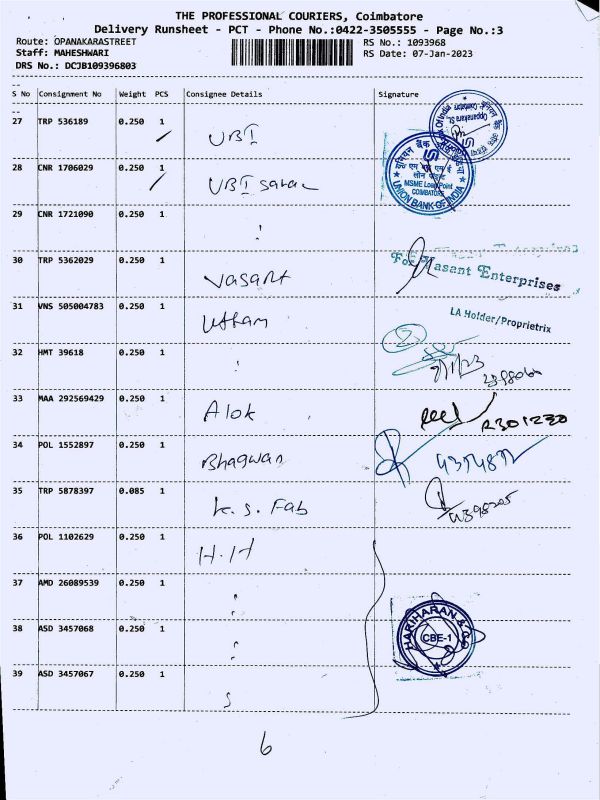 THE PROFESSIONAL COURIERS, Coimbatore
Delivery Runsheet - PCT - Phone No.:0422-3505555 - Page No.:3
Route: OPANAKARASTREET
RS No.: 1093968
Staff: MAHESHWARI
RS Date: 07-Jan-2023
DRS No.: DCJB109396803
S No Consignment No Weight PCS Consignee Details Signature
27 TRP 536189 0.250 1 UBI
28 CNR 1706029 0.250 1 UBI
यूनियन बैंक
MSME Loan Point
COIMBATORE
UNION BANK OF INDIA
29 CNR 1721090 0.250 1 "
30 TRP 5362029 0.250 1 Vasant
For Vasant Enterprises
31 VNS 505004783 0.250 1 Uttam
LA Holder/Proprietrix
32 HMT 39618 0.250 1 "
33 MAA 292569429 0.250 1 Alok
34 POL 1552897 0.250 1 Bhagwan
35 TRP 5878397 0.085 1 K.S. Fab
36 POL 1102629 0.250 1 H.H
37 AMD 26089539 0.250 1 "
38 ASD 3457068 0.250 1 "
HARIHARAN & CO
CBE-1
39 ASD 3457067 0.250 1
6